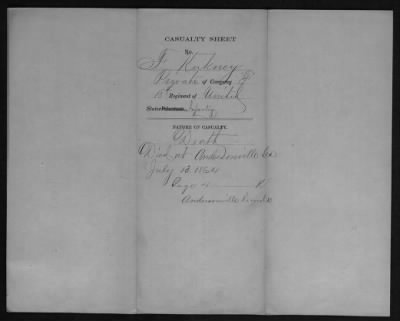 CASUALTY SHEET
No.
F. Kerkney
Private of Company F
15 Regiment of United
States Volunteers Infantry
NATURE OF CASUALTY.
Death
Died at Andersonville Ga
July 13. 1864
Page 4 K
Andersonville